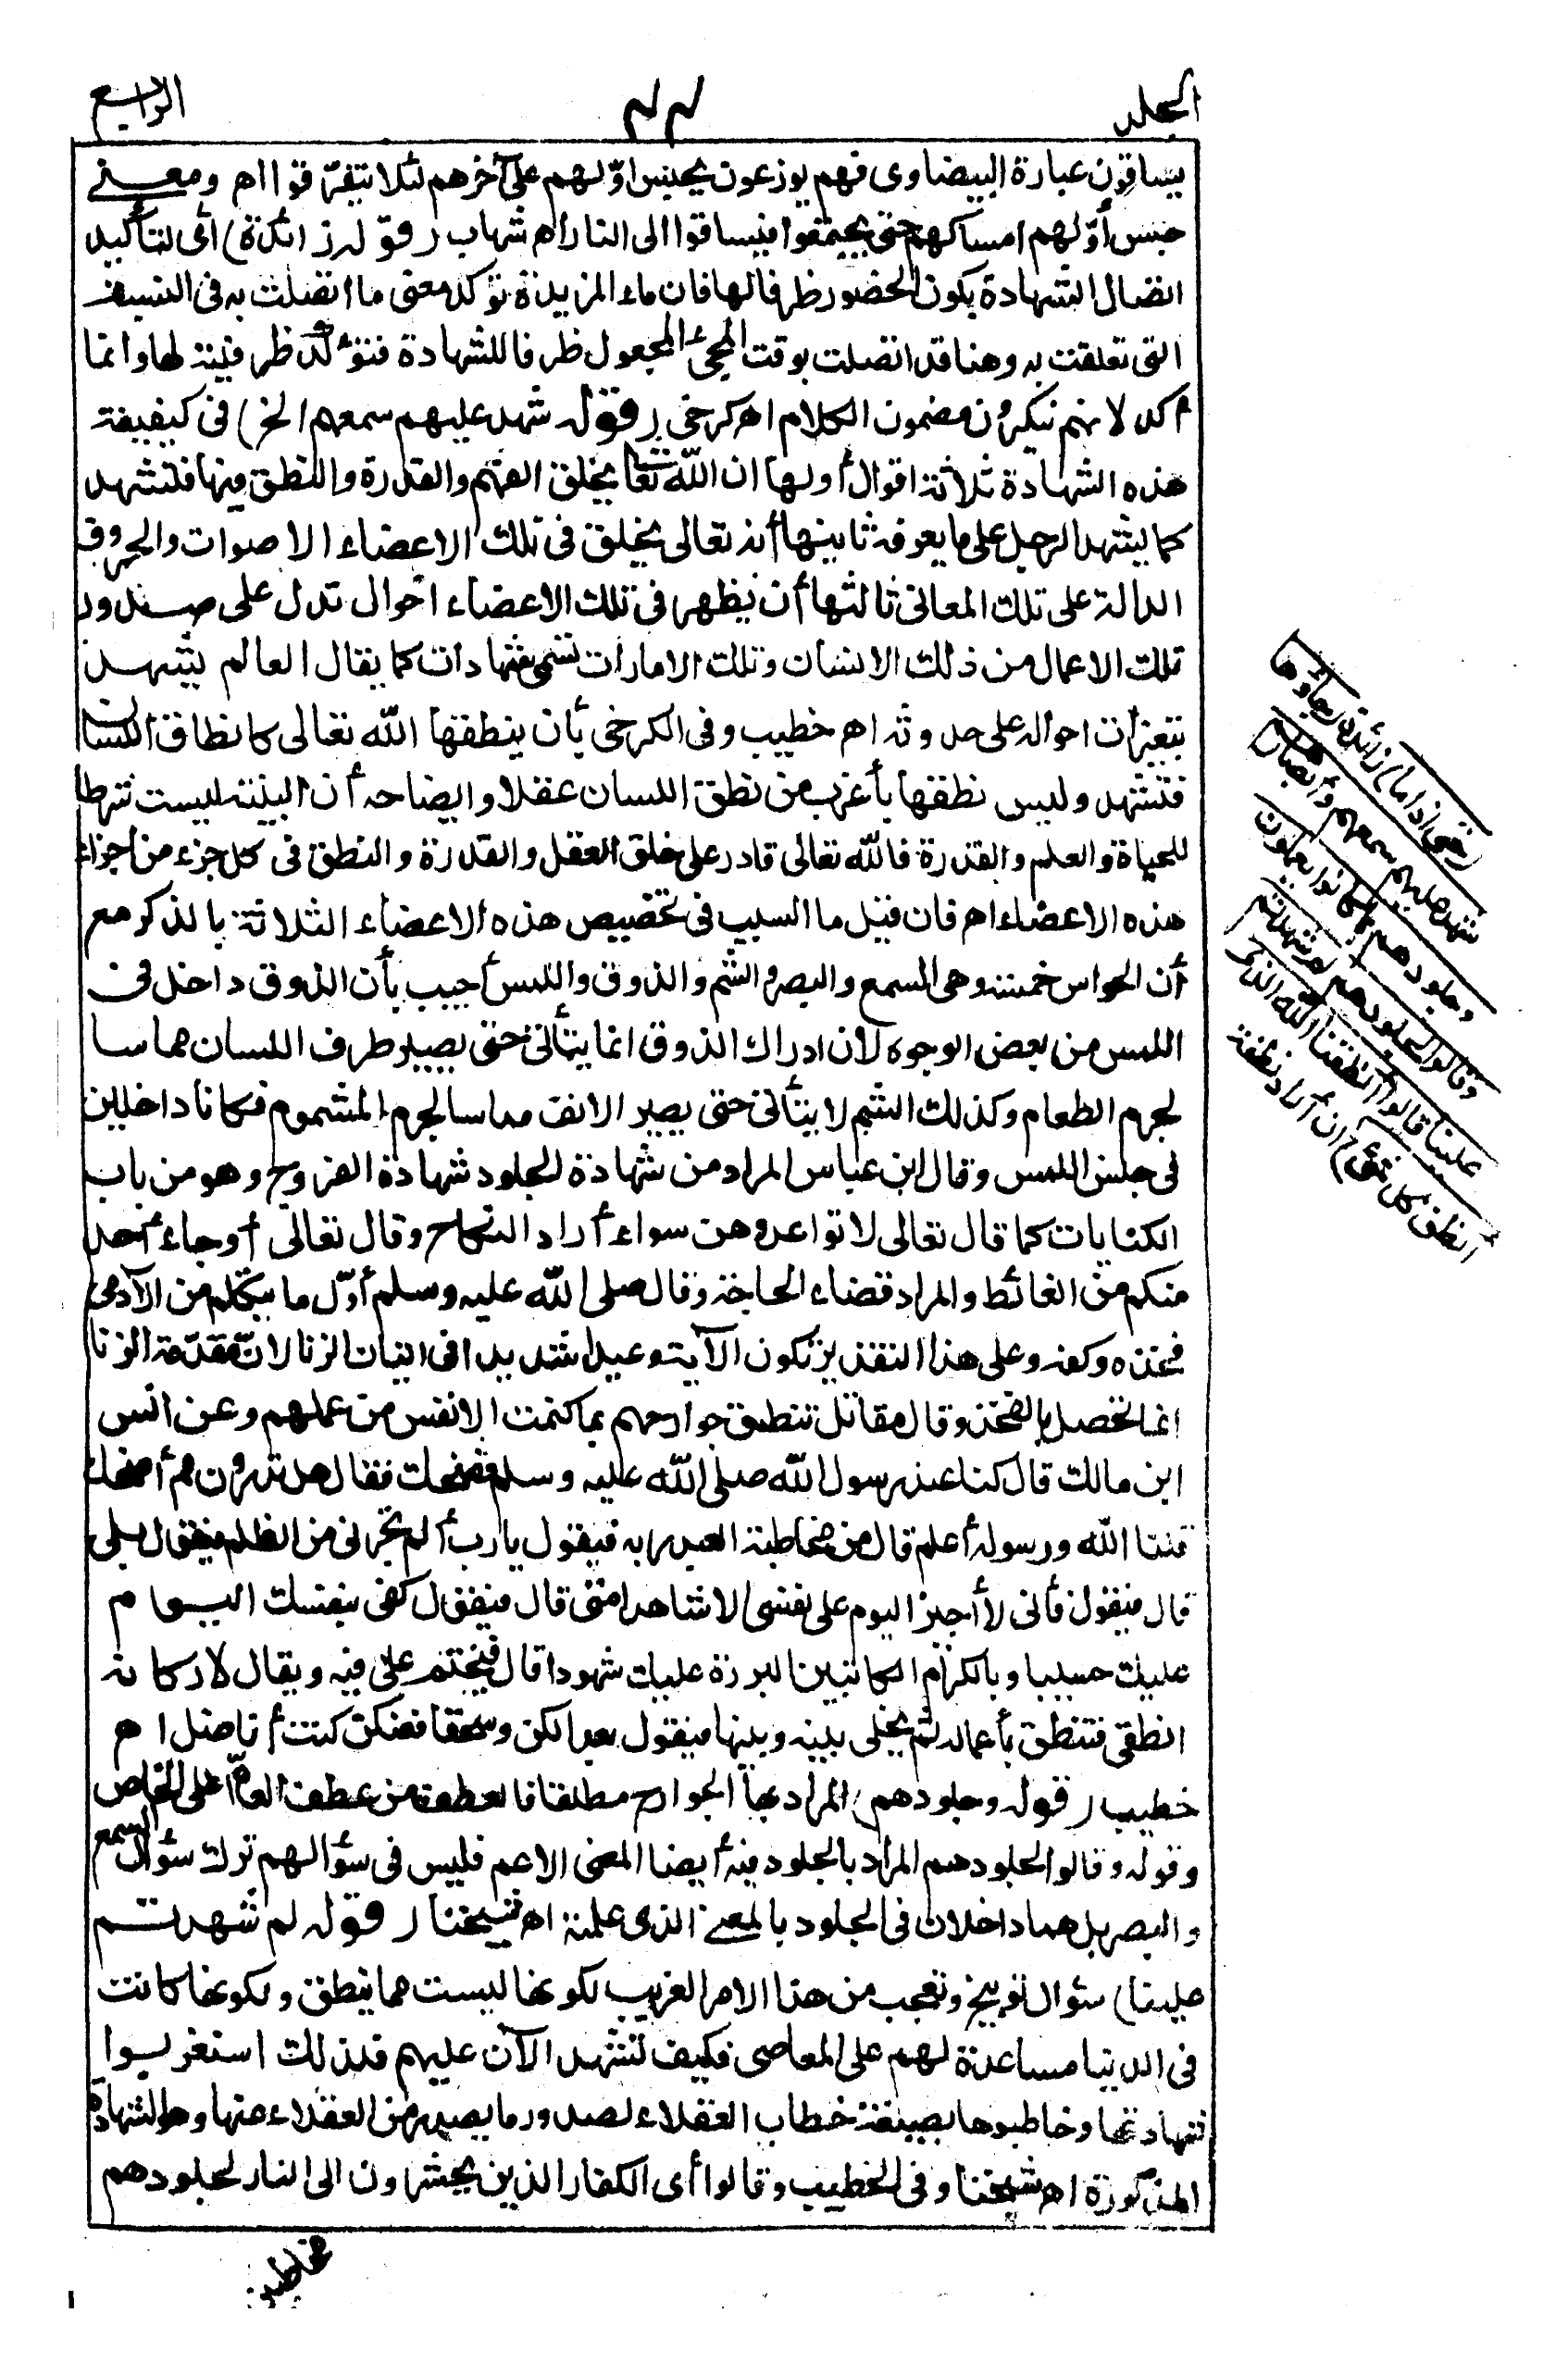 المجلد
٤٤
الرابع
يساقون عبارة البيضاوى فهم يوزعون يحبس اوّلهم على آخرهم لئلا يتفرّقوا اه ومعنى
حبس أوّلهم امساكهم حتى يجتمعوا فيساقوا الى النار اه شهاب (قوله زائدة) أى لتأكيد
اتصال الشهادة بكون الحضور ظرفا لها فان ماء المزيدة تؤكد معنى ما اتصلت به فى النسبة
التى تعلقت به وهنا قد اتصلت بوقت المجئ المجعول ظرفا للشهادة فتؤكد ظرفيته لها وانما
اكد لانهم ينكرون مضمون الكلام اه كرخى (قوله شهد عليهم سمعهم الخ) فى كيفية
هذه الشهادة ثلاثة اقوال أولها ان الله تعالى يخلق الفهم والقدرة والنطق فيها فتشهد
كما يشهد الرجل على ما يعرفه ثانيها أنه تعالى يخلق فى تلك الاعضاء الاصوات والحروف
الدالة على تلك المعانى ثالثها أن يظهر فى تلك الاعضاء احوال تدل على صدور
تلك الاعمال من ذلك الانسان وتلك الامارات تسمى شهادات كما يقال العالم يشهد
بتغيرات احواله على حدوثه اه خطيب وفى الكرخى بأن ينطقها الله تعالى كانطاق اللسان
فتشهد وليس نطقها بأغرب من نطق اللسان عقلا وايضاحه أن البنية ليست شرطا
للحياة والعلم والقدرة فالله تعالى قادر على خلق العقل والقدرة والنطق فى كل جزء من اجزاء
هذه الاعضاء اه فان قيل ما السبب فى تخصيص هذه الاعضاء الثلاثة بالذكر مع
أن الحواس خمسة وهى السمع والبصر والشم والذوق واللمس أجيب بأن الذوق داخل فى
اللمس من بعض الوجوه لأن ادراك الذوق انما يتأتى حتى يصير طرف اللسان مماسا
لجرم الطعام وكذلك الشم لا يتأتى حتى يصير الانف مماسا لجرم المشموم فكانا داخلين
فى جنس اللمس وقال ابن عباس المراد من شهادة الجلود شهادة الفروج وهو من باب
الكنايات كما قال تعالى لا تواعدوهن سراء أراد النكاح وقال تعالى أوجاء أحد
منكم من الغائط والمراد قضاء الحاجة وقال صلى الله عليه وسلم أوّل ما يتكلم من الآدمى
فخذه وكفه وعلى هذا التقدير تكون الآية وعيدا شديدا فى اتيان الزنا لانّ مقدّمة الزنا
انما تحصل بالفخذ وقال مقاتل تنطق جوارحهم بما كتمت الانفس من عملهم وعن انس
ابن مالك قال كنا عند رسول الله صلى الله عليه وسلم فضحك فقال هل تدرون مم أضحك
قلنا الله ورسوله أعلم قال من مخاطبة العبد ربه فيقول يارب ألم تجرنى من الظلم فيقول بلى
قال فيقول فأنى لا أجيز اليوم على نفسى الا شاهدا منى قال فيقول كفى بنفسك اليوم
عليك حسيبا وبالكرام الكاتبين البررة عليك شهودا قال فيختم على فيه ويقال لاركانه
انطقى فتنطق بأعماله ثم يخلى بينه وبينها فيقول بعدا لكن وسحقا فعنكن كنت أناضل اه
خطيب (قوله وجلودهم) المراد بها الجوارح مطلقا فالعطف من عطف العامّ على الخاص
وقوله وقالوا لجلودهم المراد بالجلود فيه أيضا المعنى الاعم فليس فى سؤالهم ترك سؤال السمع
والبصر بل هما داخلان فى الجلود بالمعنى الذى علمته اه شيخنا (قوله لم شهدتم
علينا) سئوال توبيخ وتعجب من هذا الامر الغريب لكونها ليست مما ينطق ولكونها كانت
فى الدنيا مساعدة لهم على المعاصى فكيف تشهد الآن عليهم فلذلك استغربوا
شهادتها وخاطبوها بصيغة خطاب العقلاء لصدور ما يصدر من العقلاء منها وهو الشهادة
المذكورة اه شيخنا وفى الخطيب وقالوا أى الكفار الذين يحشرون الى النار لجلودهم
(حتى اذا ما) زائدة (جاؤها
شهد عليهم سمعهم وأبصارهم
وجلودهم بما كانوا يعملون
وقالوا لجلودهم لم شهدتم
علينا قالوا أنطقنا الله الذى
انطق كل شئ) ان أراد نطقه
مخاطبين